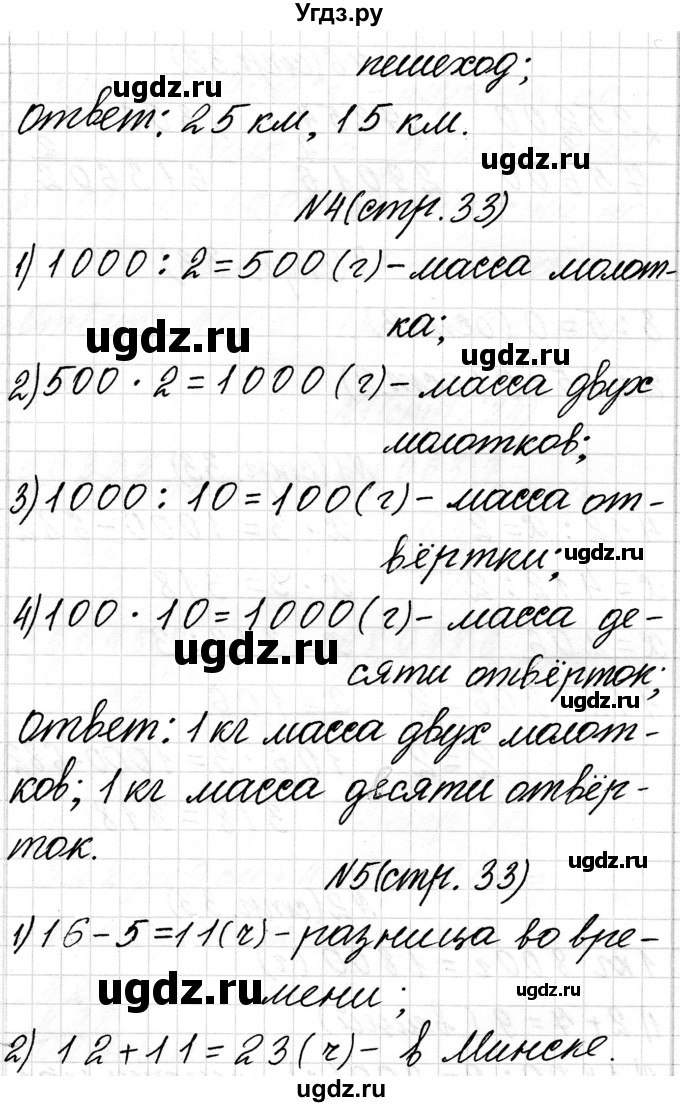 Угдз.ру
пешеход;
ugdz.ru
Ответ: 25 км, 15 км.
ugdz.ru
N4(стр. 33)
1) 1000 : 2 = 500 (г) - масса молот-
ugdz.ru ка;
ugdz.ru
2) 500 · 2 = 1000 (г) - масса двух
молотков;
ugdz.ru
3) 1000 : 10 = 100 (г) - масса от-
вёртки; ugdz.ru
4) 100 · 10 = 1000 (г) - масса де-
ugdz.ru
сяти отвёрток;
ugdz.ru
Ответ: 1 кг масса двух молот-
ков; 1 кг масса десяти отвёр-
ток.
ugdz.ru
N5(стр. 33)
1) 16 - 5 = 11 (ч) - разница во вре-
ugdz.ru мени; ugdz.ru
2) 12 + 11 = 23 (ч) - в Минске.
ugdz.ru